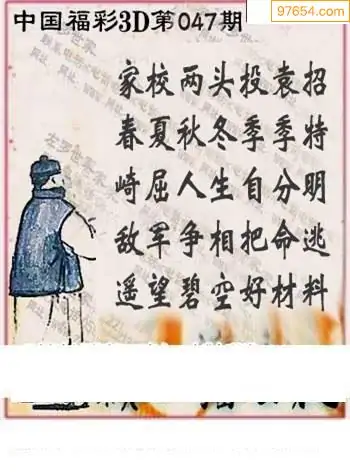 97654.com
中国福彩3D第047期
家校两头投袁招
春夏秋冬季季特
崎屈人生自分明
敌军争相把命逃
遥望碧空好材料